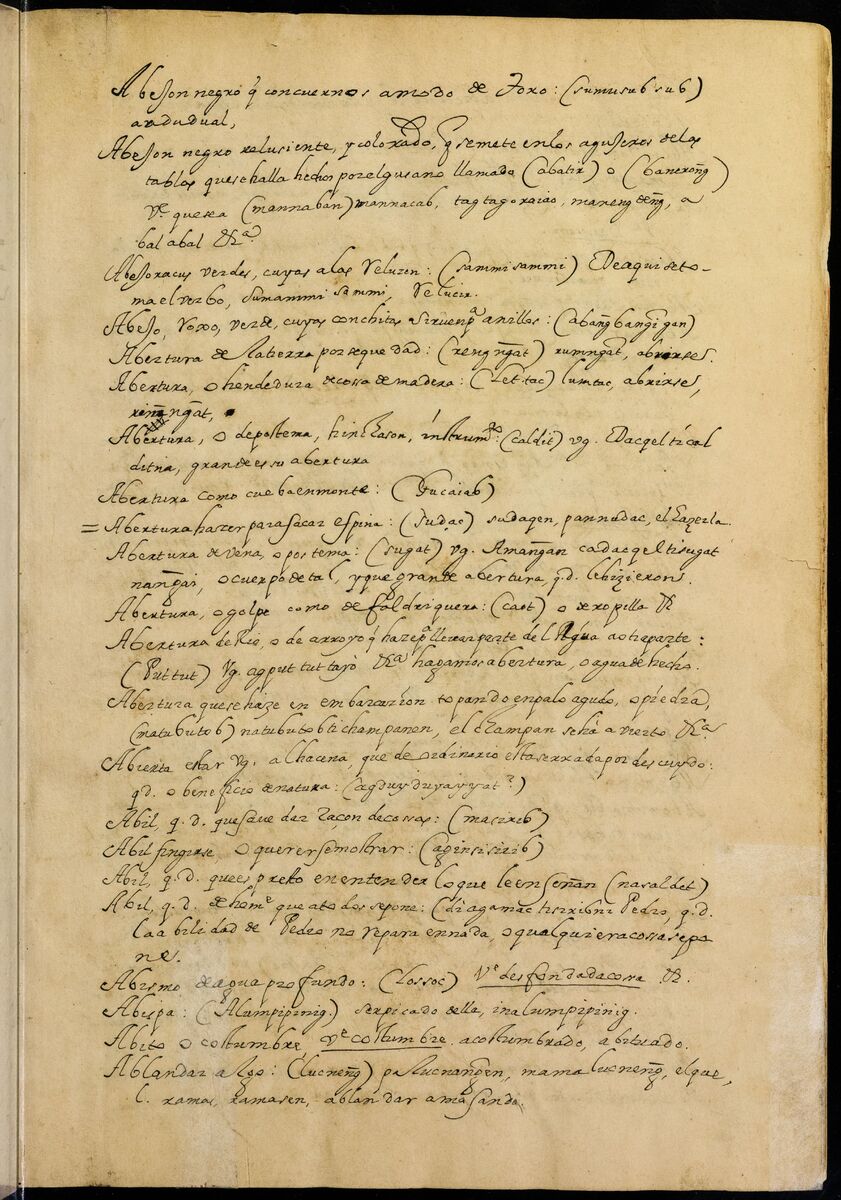 Abejon negro q̃ concuernos amodo de Toro: (sumusub sub)
aradudual,
Abejon negro relusiente, y colorado, q̃ semete enlos agujeros delas
tablas quesehalla hechos porelgusano llamado (abatir) o (banerong̃)
Ve. quesea (mannaban) mannacab, tagtagoraiao, marengdeng̃, a
balabal &ra.
Abejoracus verdes, cuyas alas Reluzen: (sammisammi) Deaqui seto-
ma el verbo, sumammi sammi, Relucir.
Abejo, Roxo, verde, cuyas conchitas siruenpa. anillos: (abang̃bang̃igan)
Abertura de la tierra porsequedad: (reng ng̃at) rumng̃at, abrirse.
Abertura, o hendedura decossa demadera: (Lettac) lumtac, abrirse,
ring̃ng̃at,
Abertura, o depostema, hinchason, instrumto: (caldit) vg. Dacqel ti cal
ditna, grande es su abertura
Abertura como cueba enmonte: (Rucaiab)
= Abertura hazer para sacar espina: (sudac) sudaqen, pannudac, el hazerla.
Abertura de vena, o postema: (sugat) vg. Amang̃an cadacqel tisugat
nang̃ai, o cuerpo de tal, y que grande abertura, q.d. lehizieron.
Abertura, o golpe como de faldriquera: (caot) o de ropilla &
Abertura de Rio, o de arroyo q̃ hazepa. llevar parte del Agua aotraparte:
(Puttut) Vg. agput tut tayo &ra. hagamos abertura, o agua de hecho.
Abertura quesehaze en embarcazion topando enpalo agudo, o piedra,
(natubutob) natubutob ti champanen, el champan se hà avierto &ra
Abierta estar vg. alhacena, que de ordinario esta serrada por descuydo:
q.d. o beneficio denatura: (agduyduyayyat.)
Abil, q. d. quesave dar raçon decossas: (masirib)
Abil fingirse, o querersemostrar: (aginsisirib)
Abil, q. d. que es presto en entender lo que leenseñan (nasaldet)
Abil, q. d. de home. que atodossepone: (diagamac tisiribni Pedro, q.d.
la abilidad de Pedro no repara ennada, o qualquieracossasepo
ne.
Abismo de agua profundo: (Lossoc) Ve. desfondadacossa &.
Abispa: (Alumpipinig.) serpicado della, inalumpipinig.
Abito o costumbre, ve costumbre. acostumbrado, abituado.
Ablandar algo: (lucneng̃) palucnang̃en, mamalucneng̃, elque,
l. ramas, ramasen, ablandar amasando.